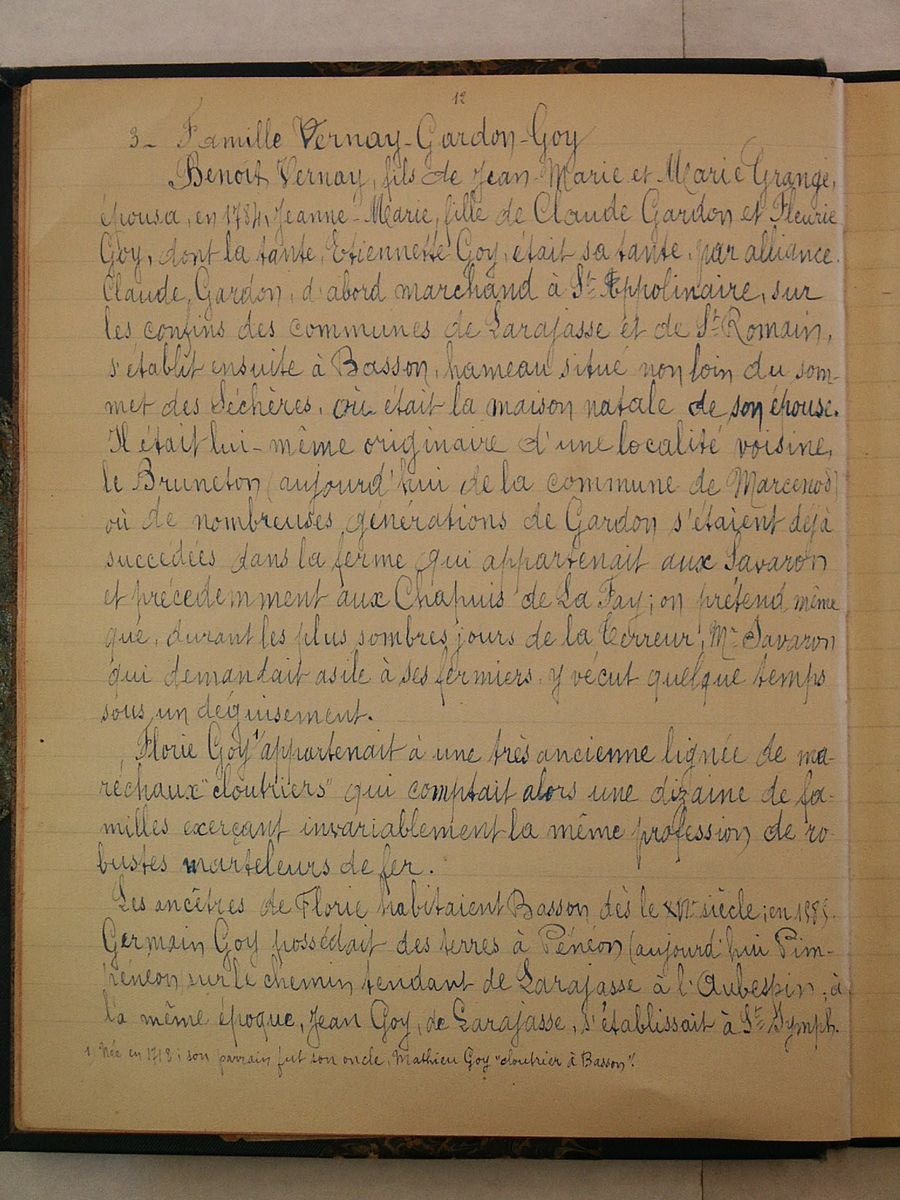 12
3- Famille Vernay-Gardon-Goy
Benoit Vernay, fils de Jean-Marie et Marie Grange,
épousa, en 1784, Jeanne-Marie, fille de Claude Gardon et Fleurie
Goy, dont la tante, Etiennette Goy, était sa tante par alliance.
Claude Gardon, d'abord marchand à St Appolinaire, sur
les confins des communes de Larajasse et de St Romain,
s'établit ensuite à Basson, hameau situé non loin du som-
met des Séchères, où était la maison natale de son épouse.
Il était lui-même originaire d'une localité voisine,
le Bruneton (aujourd'hui de la commune de Marcenod)
où de nombreuses générations de Gardon s'étaient déjà
succédées dans la ferme qui appartenait aux Savaron
et précedemment aux Chapuis de La Fay; on prétend même
que, durant les plus sombres jours de la Terreur, Mr Savaron
qui demandait asile à ses fermiers y vécut quelque temps
sous un déguisement.
Florie Goy¹ appartenait à une très ancienne lignée de ma-
réchaux "cloutriers" qui comptait alors une dizaine de fa-
milles exerçant invariablement la même profession de ro-
bustes marteleurs de fer.
Les ancêtres de Florie habitaient Basson dès le siècle; en
Germain Goy possédait des terres à Pénéon (aujourd'hui Pim-
pénéon) sur le chemin tendant de Larajasse à l'Aubespin; à
la même époque, Jean Goy, de Larajasse, s'établissait à St Symph.
1. Née en ; son parrain fut son oncle, Mathieu Goy "cloutrier à Basson".